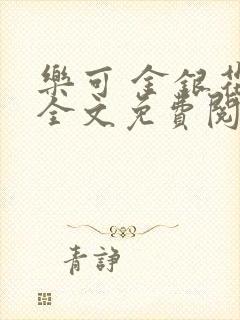 樂可 金銀花
全文免費閱
青諍